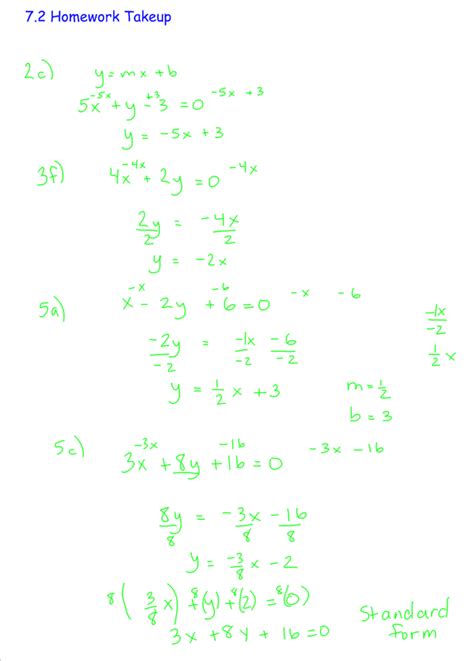 7.2 Homework Takeup
2c) y = mx + b
5x^{-5x} + y - 3^{+3} = 0^{-5x +3}
y = -5x + 3
3f) 4x^{-4x} + 2y = 0^{-4x}
2y/2 = -4x/2
y = -2x
5a) x^{-x} - 2y + 6^{-6} = 0 -x -6
-2y/-2 = -1x/-2 -6/-2
-1x/-2
1/2 x
y = 1/2 x + 3
m = 1/2
b = 3
5c) 3x^{-3x} + 8y + 16^{-16} = 0 -3x -16
8y/8 = -3x/8 -16/8
y = -3/8 x - 2
8(3/8 x) + 8(y) + 8(2) = 8(0)
3x + 8y + 16 = 0
Standard form